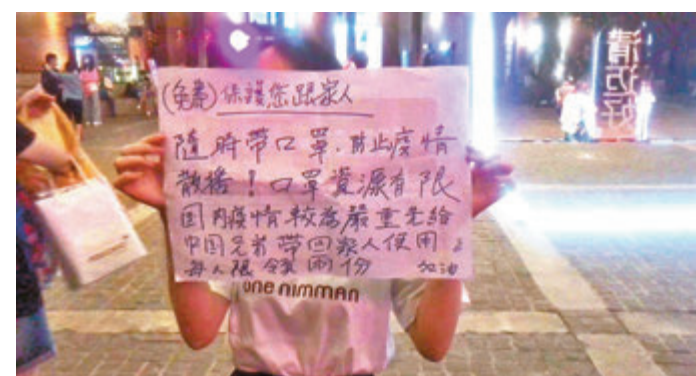 (免費)保護您跟家人
隨時帶口罩.防止疫情
散播！口罩資源有限
国内疫情較為嚴重先給
中国兄弟帶回家人使用。
每人限領兩份 加油
one nimman
清迈好